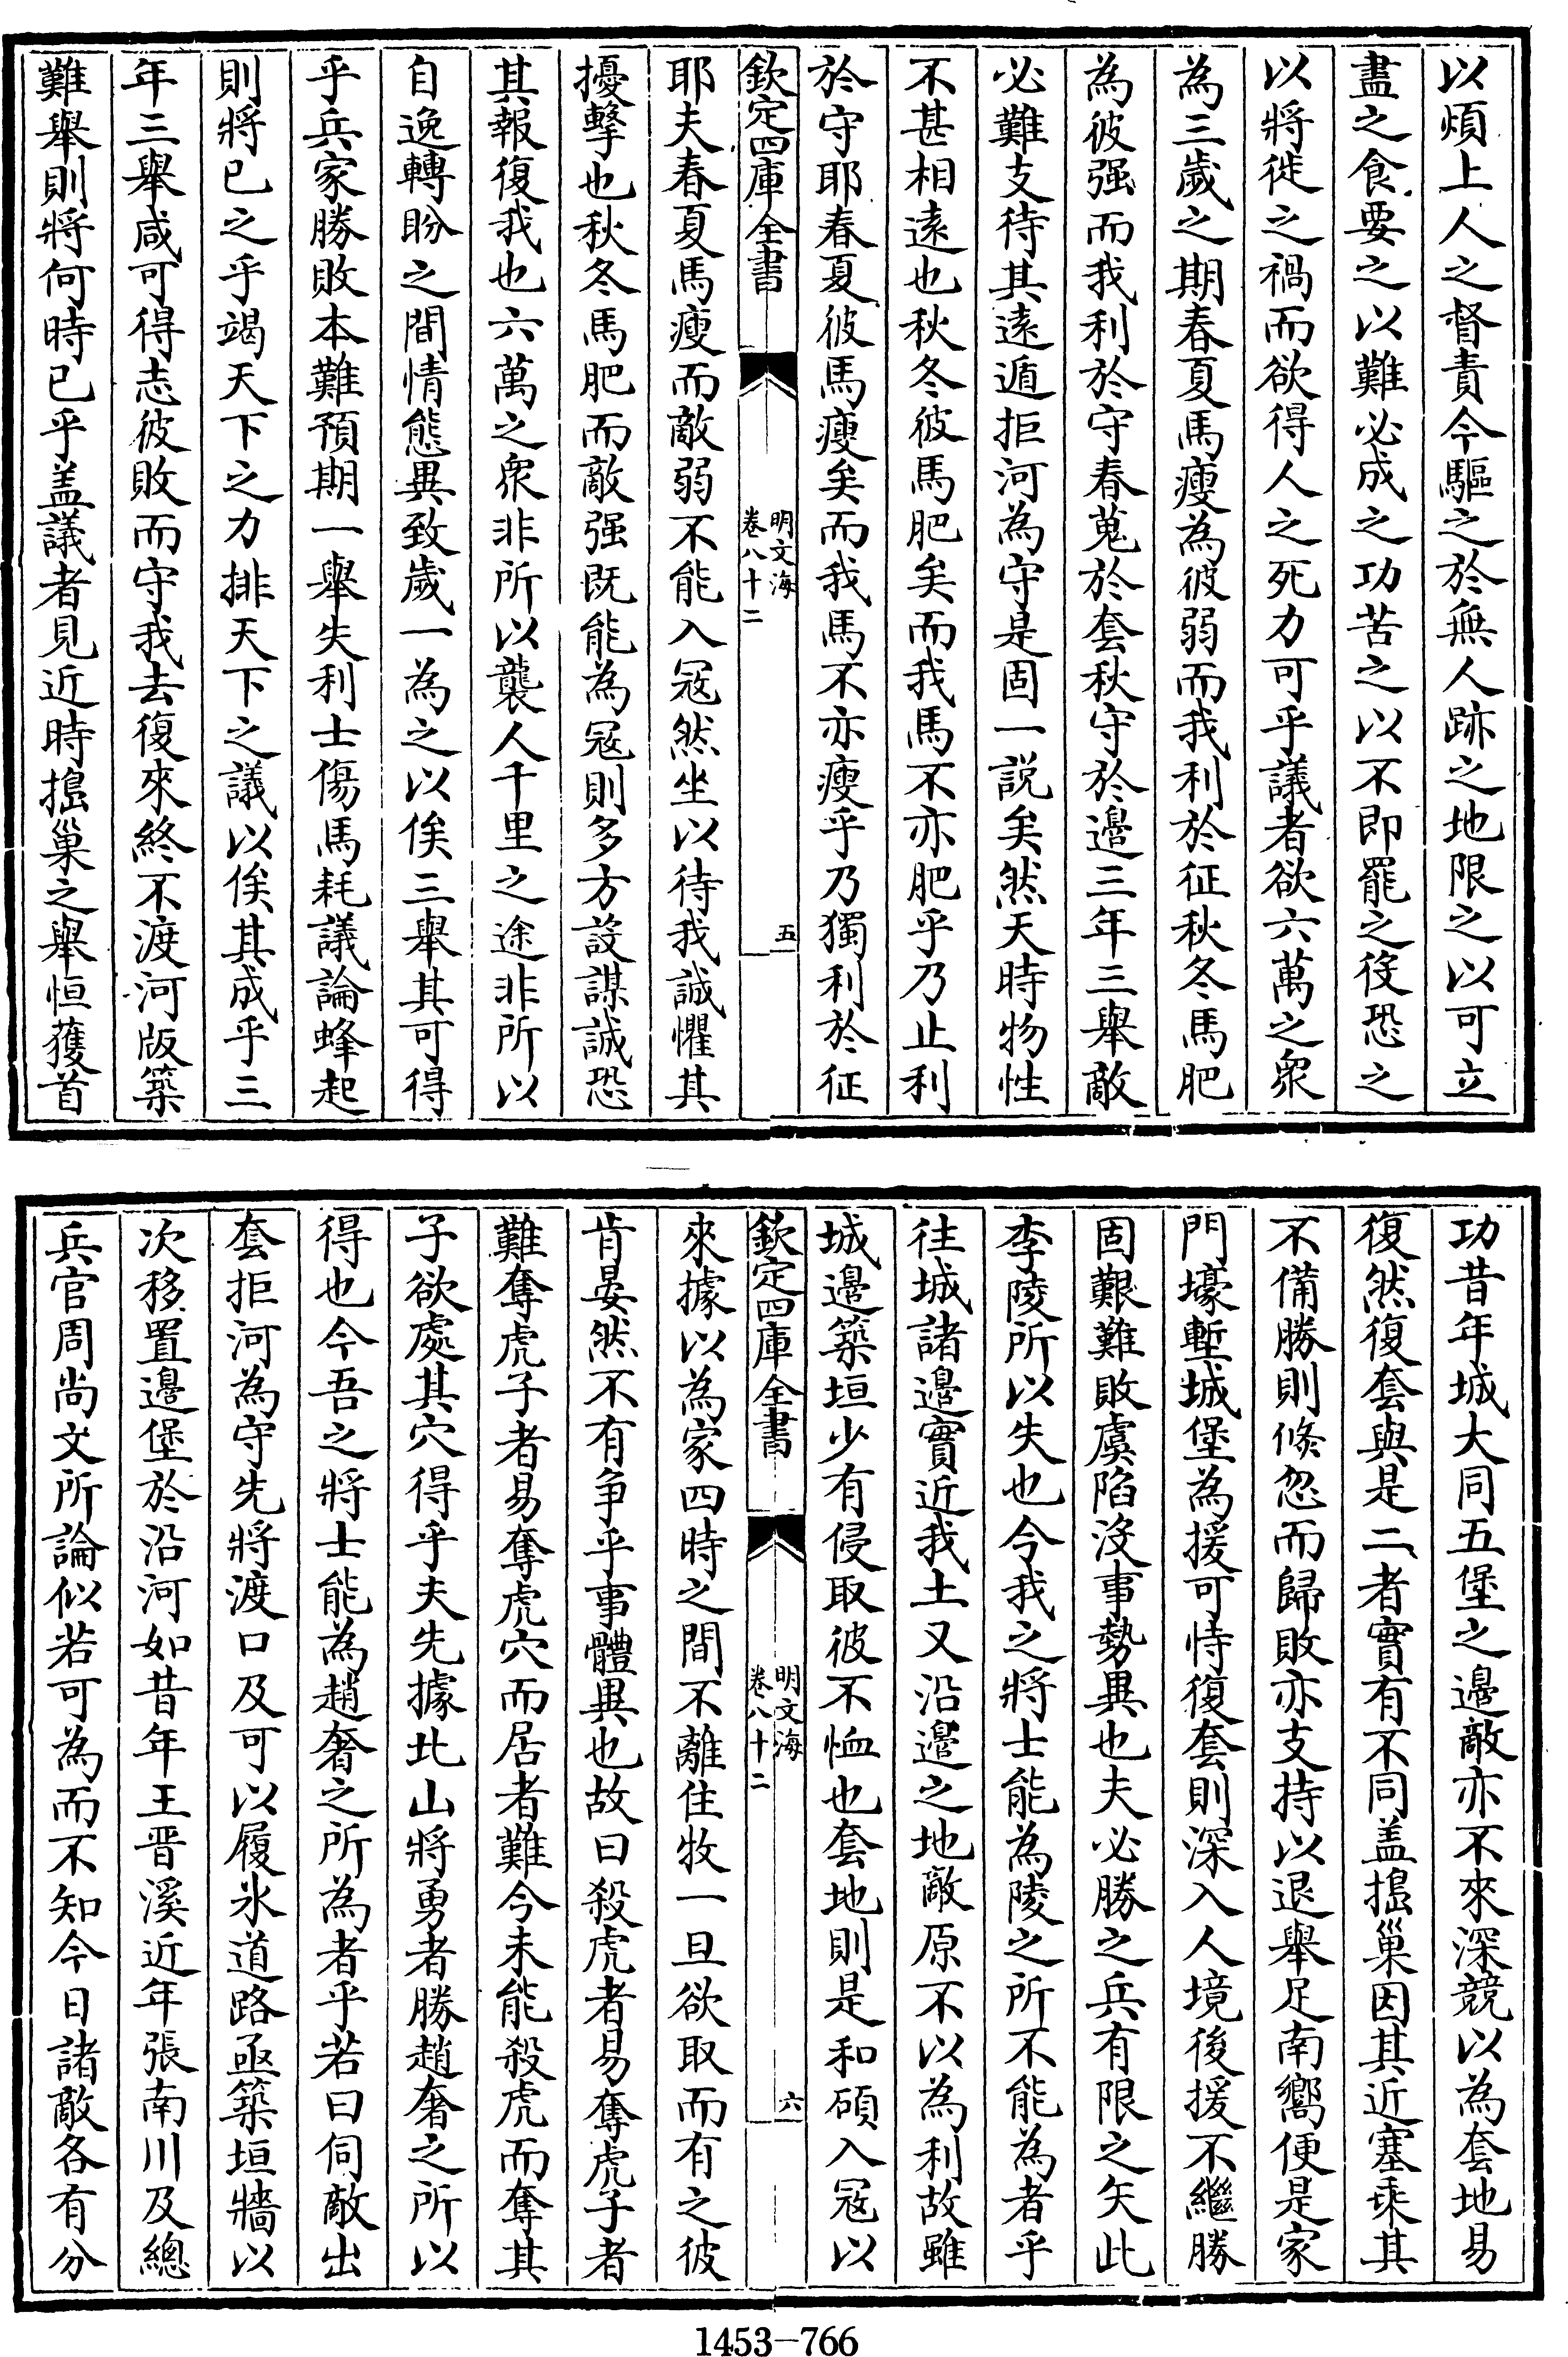 以煩上人之督責今驅之於無人跡之地限之以可立
盡之食要之以難必成之功苦之以不即罷之役恐之
以將徙之禍而欲得人之死力可乎議者欲六萬之衆
為三歲之期春夏馬瘦為彼弱而我利於征秋冬馬肥
為彼强而我利於守春蒐於套秋守於邊三年三舉敵
必難支待其遠遁拒河為守是固一説矣然天時物性
不甚相遠也秋冬彼馬肥矣而我馬不亦肥乎乃止利
於守耶春夏彼馬瘦矣而我馬不亦瘦乎乃獨利於征
欽定四庫全書
明文海
卷八十二
五
耶夫春夏馬瘦而敵弱不能入冦然坐以待我誠懼其
擾擊也秋冬馬肥而敵强既能為冦則多方設謀誠恐
其報復我也六萬之衆非所以襲人千里之途非所以
自逸轉盼之間情態異致歲一為之以俟三舉其可得
乎兵家勝敗本難預期一舉失利士傷馬耗議論蜂起
則將已之乎竭天下之力排天下之議以俟其成乎三
年三舉咸可得志彼敗而守我去復來終不渡河版築
難舉則將何時已乎盖議者見近時搗巢之舉恒獲首
功昔年城大同五堡之邊敵亦不來深競以為套地易
復然復套與是二者實有不同盖搗巢因其近塞乘其
不備勝則倏忽而歸敗亦支持以退舉足南嚮便是家
門壕塹城堡為援可恃復套則深入人境後援不繼勝
固艱難敗虞陷沒事勢異也夫必勝之兵有限之矢此
李陵所以失也今我之將士能為陵之所不能為者乎
往城諸邊實近我土又沿邊之地敵原不以為利故雖
城邊築垣少有侵取彼不恤也套地則是和碩入冦以
欽定四庫全書
明文海
卷八十二
六
來據以為家四時之間不離住牧一旦欲取而有之彼
肯晏然不有争乎事體異也故曰殺虎者易奪虎子者
難奪虎子者易奪虎穴而居者難今未能殺虎而奪其
子欲處其穴得乎夫先據北山將勇者勝趙奢之所以
得也今吾之將士能為趙奢之所為者乎若曰伺敵出
套拒河為守先將渡口及可以履氷道路亟築垣牆以
次移置邊堡於沿河如昔年王晋溪近年張南川及總
兵官周尚文所論似若可為而不知今日諸敵各有分
1453-766